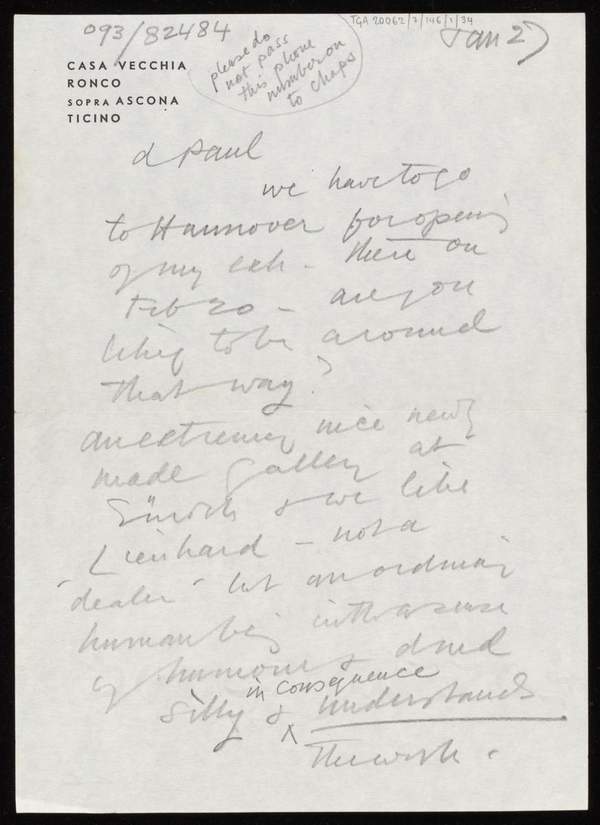 093/82484
please do
not pass
this phone
number on
to chaps
TGA 20062/7/146/1/34
Jan 27
CASA VECCHIA
RONCO
SOPRA ASCONA
TICINO
d Paul
we have to go
to Hannover for opening
of my exh - there on
Feb 20 - are you
likely to be around
that way?
an extremely nice newly
made gallery at
Zürich & we like
Lienhard - not a
"dealer" but an ordinary
human being with a sense
of humour &
silly & in consequence understands
the work.